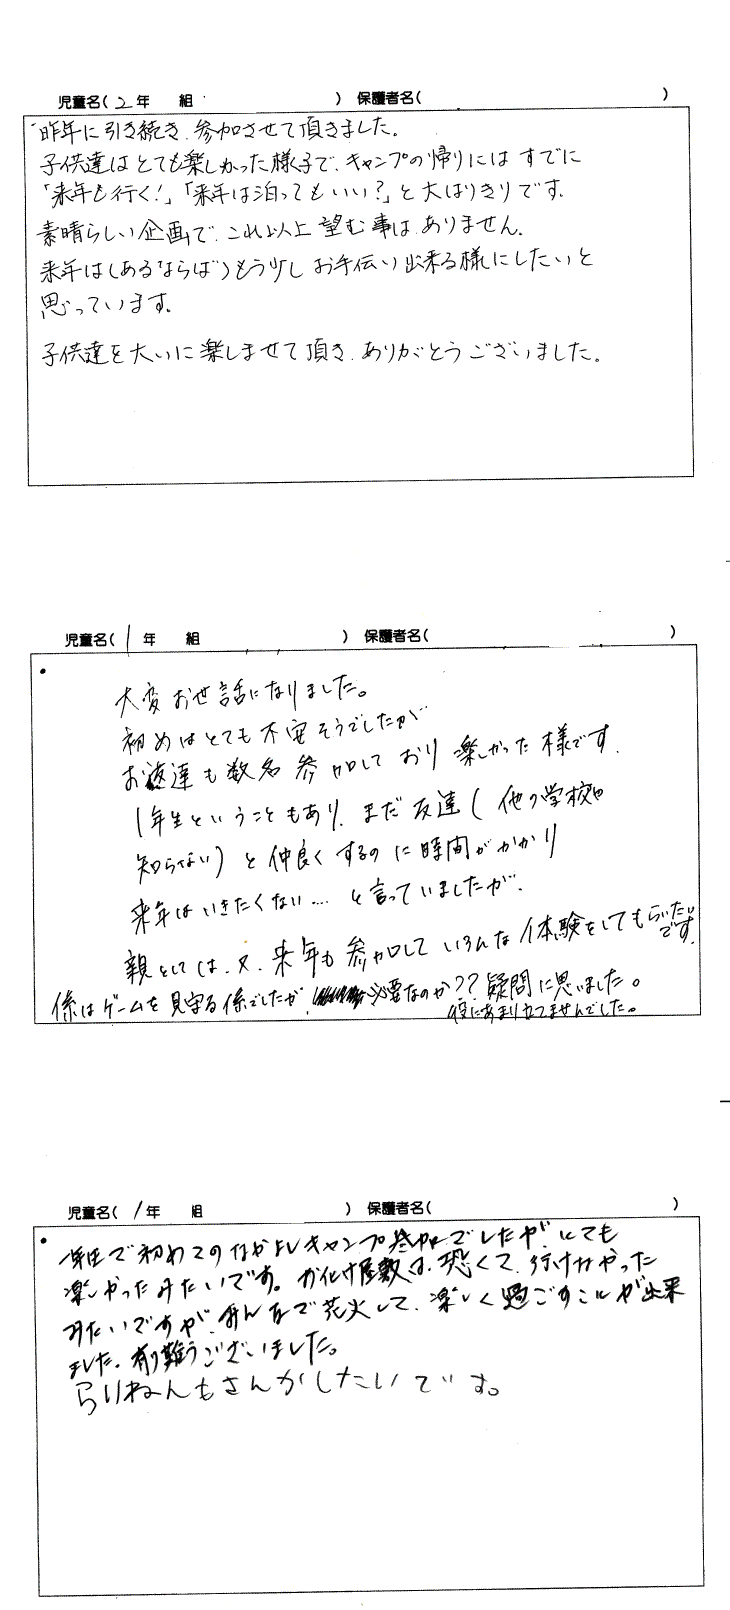 児童名( 2 年 組 ) 保護者名( )
昨年に引き続き、参加させて頂きました。
子供達はとても楽しかった様子で、キャンプの帰りにはすでに
「来年も行く!」「来年は泊ってもいい?」と大はりきりです。
素晴らしい企画で、これ以上望む事はありません。
来年は(あるならば)もう少しお手伝い出来る様にしたいと
思っています。
子供達を大いに楽しませて頂き、ありがとうございました。
児童名( 1 年 組 ) 保護者名( )
大変お世話になりました。
初めはとても不安そうでしたが
お友達も数名参加しており楽しかった様です。
1年生ということもあり、まだ友達(他の学校や
知らない)と仲良くするのに時間がかかり
来年はいきたくない…と言っていましたが、
親としては、又、来年も参加していろんな体験をしてもらいたい
です。
係はゲームを見守る係でしたが、必要なのか??疑問に思いました。
役にあまり立てませんでした。
児童名( 1 年 組 ) 保護者名( )
1年生で初めてのなかよしキャンプ参加でしたがとても
楽しかったみたいです。お化け屋敷は、恐くて、行けなかった
みたいですが、みんなで花火して、楽しく過ごすことが出来
ました。有り難うございました。
らいねんもさんかしたいです。